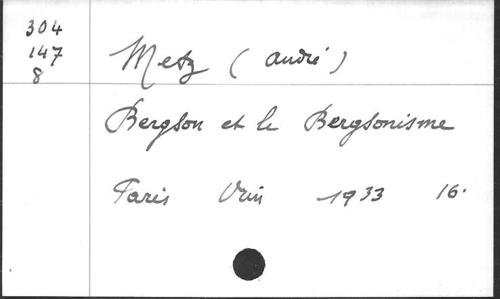 304
147
8
Metz (André)
Bergson et le Bergsonisme
Paris Vrin 1933 16.